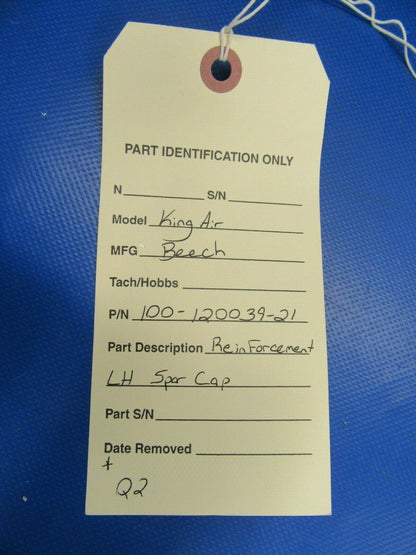 PART IDENTIFICATION ONLY
N__________ S/N__________
Model King Air
MFG Beech
Tach/Hobbs__________
P/N 100-120039-21
Part Description ReinForcement
LH Spar Cap
Part S/N__________
Date Removed__________
*
Q2